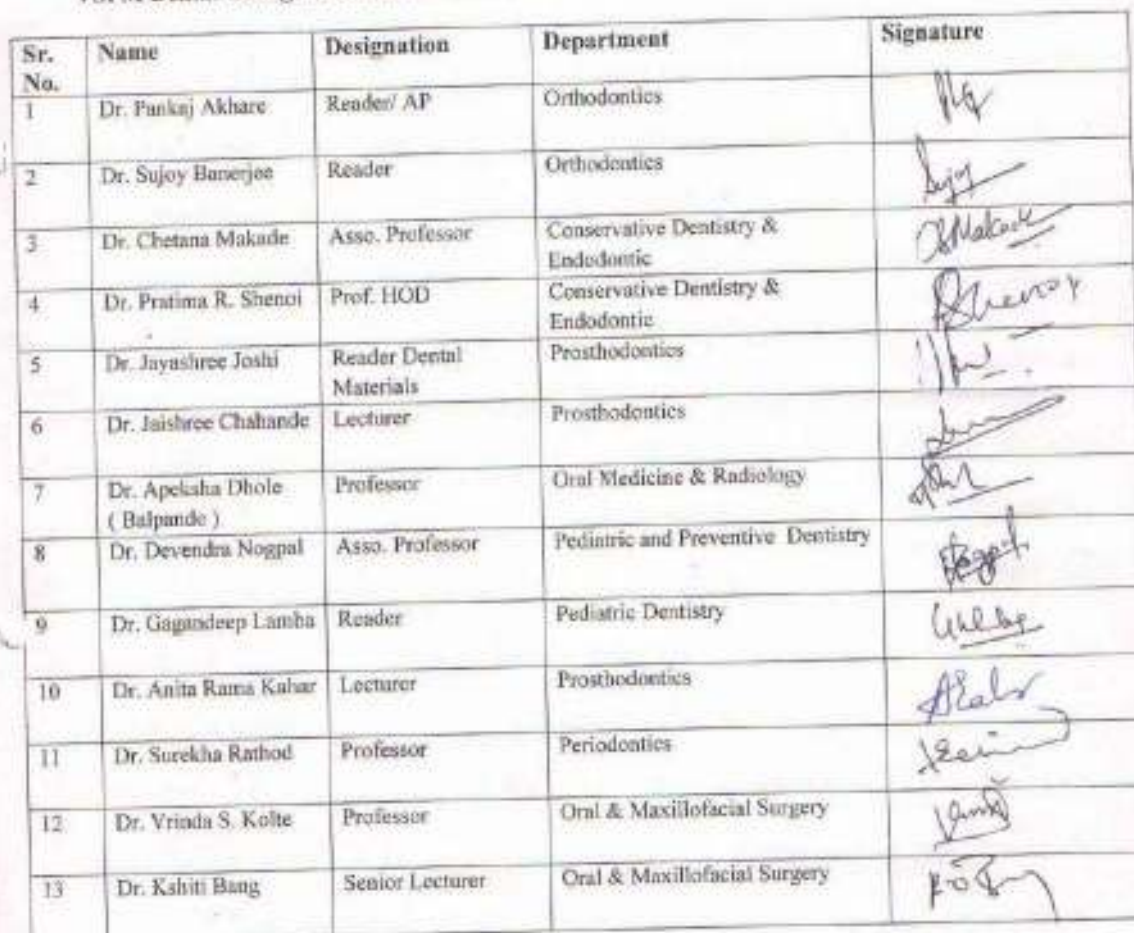 Sr. No. Name Designation Department Signature
1 Dr. Pankaj Akhare Reader/ AP Orthodontics
2 Dr. Sujoy Banerjee Reader Orthodontics Sujoy
3 Dr. Chetana Makade Asso. Professor Conservative Dentistry &
Endodontic
4 Dr. Pratima R. Shenoi Prof. HOD Conservative Dentistry &
Endodontic
5 Dr. Jayashree Joshi Reader Dental Prosthodontics
Materials
6 Dr. Jaishree Chahande Lecturer Prosthodontics
7 Dr. Apeksha Dhole Professor Oral Medicine & Radiology
( Balpande )
8 Dr. Devendra Nogpal Asso. Professor Pediatric and Preventive Dentistry
9 Dr. Gagandeep Lamba Reader Pediatric Dentistry
10 Dr. Anita Rama Kahar Lecturer Prosthodontics
11 Dr. Surekha Rathod Professor Periodontics
12 Dr. Vrinda S. Kolte Professor Oral & Maxillofacial Surgery
13 Dr. Kshiti Bang Senior Lecturer Oral & Maxillofacial Surgery